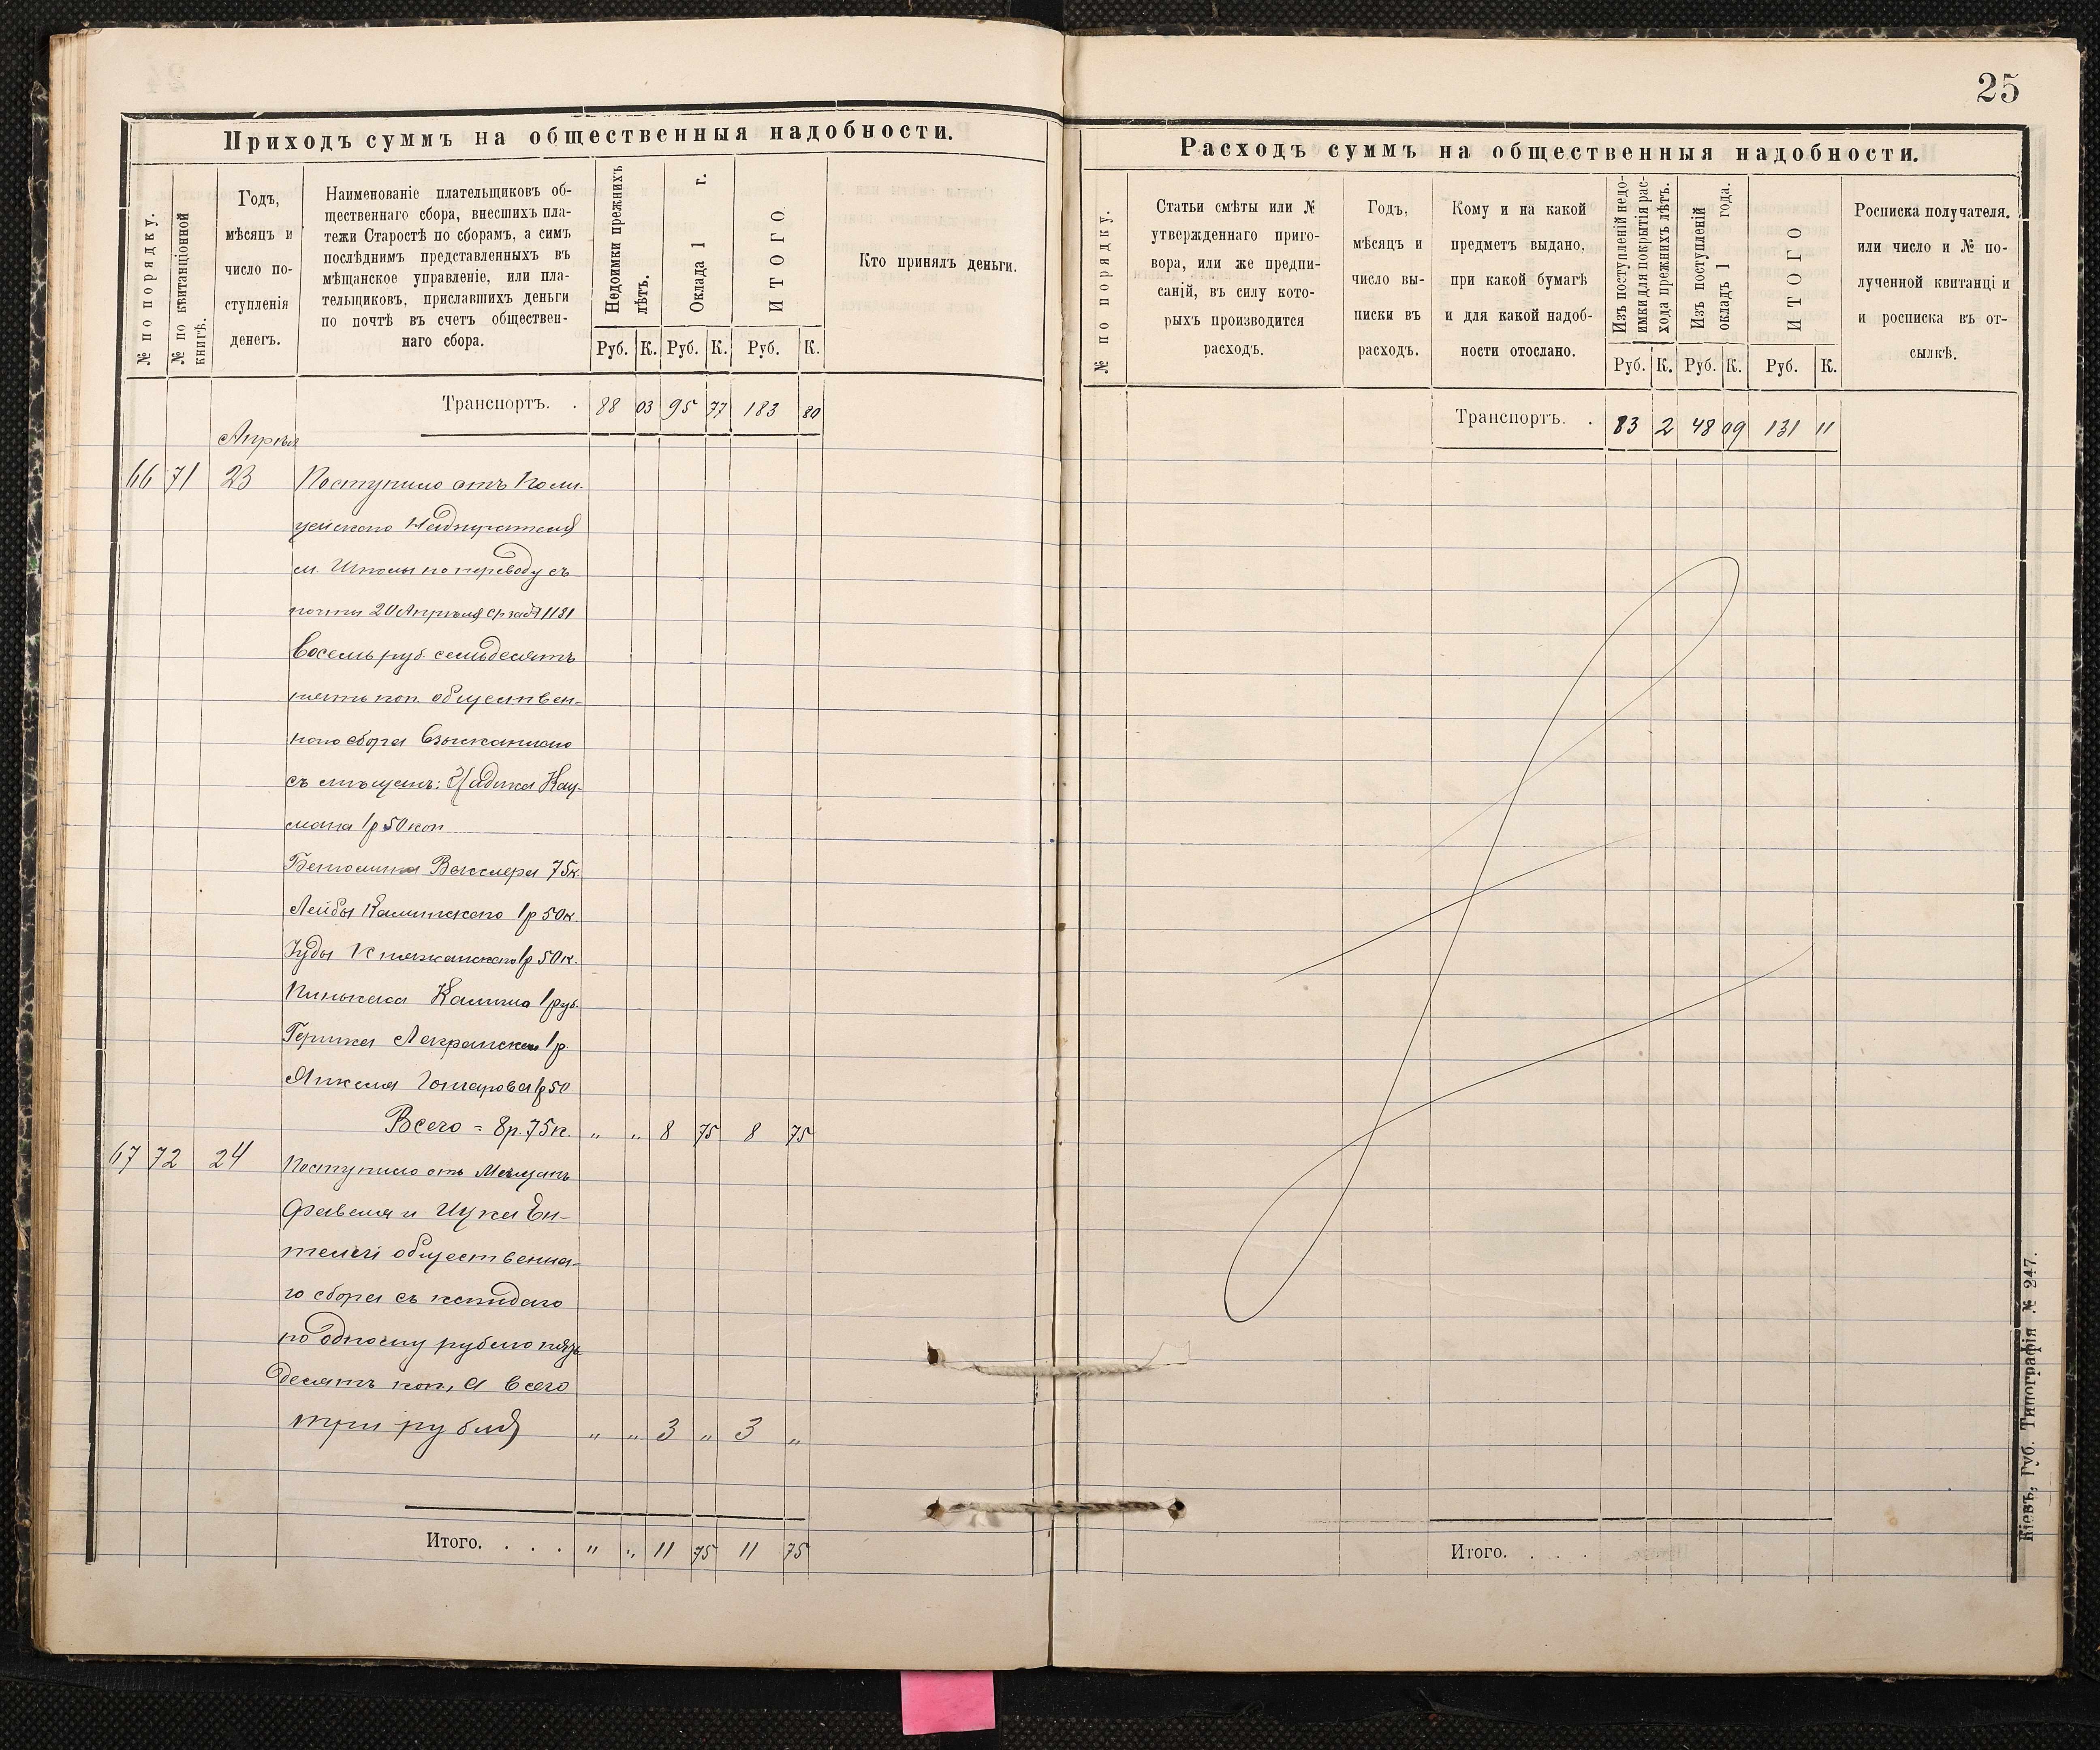 25
Приходъ суммъ на общественныя надобности.
№ по порядку.
№ по квитанціонной
книгѣ.
Годъ,
мѣсяцъ и
число по-
ступленія
денегъ.
Наименованіе плательщиковъ об-
щественнаго сбора, внесшихъ пла-
тежи Старостѣ по сборамъ, а симъ
послѣднимъ представленныхъ въ
мѣщанское управленіе, или пла-
тельщиковъ, приславшихъ деньги
по почтѣ въ счетъ обществен-
наго сбора.
Недоимки прежнихъ
лѣтъ.
Оклада 1 г.
ИТОГО
Кто принялъ деньги.
Руб. К. Руб. К. Руб. К.
Транспортъ. . 88 03 95 77 183 80
Апрѣля
66 71 23 Поступило отъ Поли-
цейскаго Надзирателя
м. Шполы по переводу съ
почты 20 Апрѣля 1181
Восемь руб. семьдесятъ
пять коп. обществен-
наго сбора взысканнаго
съ мѣщанъ:
1 р 50 коп
75 к.
Лейбы Каминскаго 1 р 50 к.
Іуды 1 р 50 к.
Пинькаса 1 руб.
Гершка 1 р
Янкеля Гончарова 1 р 50
Всего = 8 р. 75 к. " " 8 75 8 75
67 72 24 Поступило отъ Мѣщанъ
и Ицка Ен-
общественна-
го сбора съ каждаго
по одному рублю пять-
десятъ коп, а всего
три рубля " " 3 " 3 "
Итого. . . . " " 11 75 11 75
Расходъ суммъ на общественныя надобности.
№ по порядку.
Статьи смѣты или №
утвержденнаго приго-
вора, или же предпи-
саній, въ силу кото-
рыхъ производится
расходъ.
Годъ,
мѣсяцъ и
число вы-
писки въ
расходъ.
Кому и на какой
предметъ выдано,
при какой бумагѣ
и для какой надоб-
ности отослано.
Изъ поступленій недо-
имки для покрытія рас-
хода прежнихъ лѣтъ.
Изъ поступленій
окладъ 1 года.
ИТОГО
Росписка получателя.
или число и № по-
лученной квитанці и
и росписка въ от-
сылкѣ.
Руб. К. Руб. К. Руб. К.
Транспортъ. . 83 2 48 09 131 11
Итого. . . .
Кіевъ, Губ. Типографія № 247.